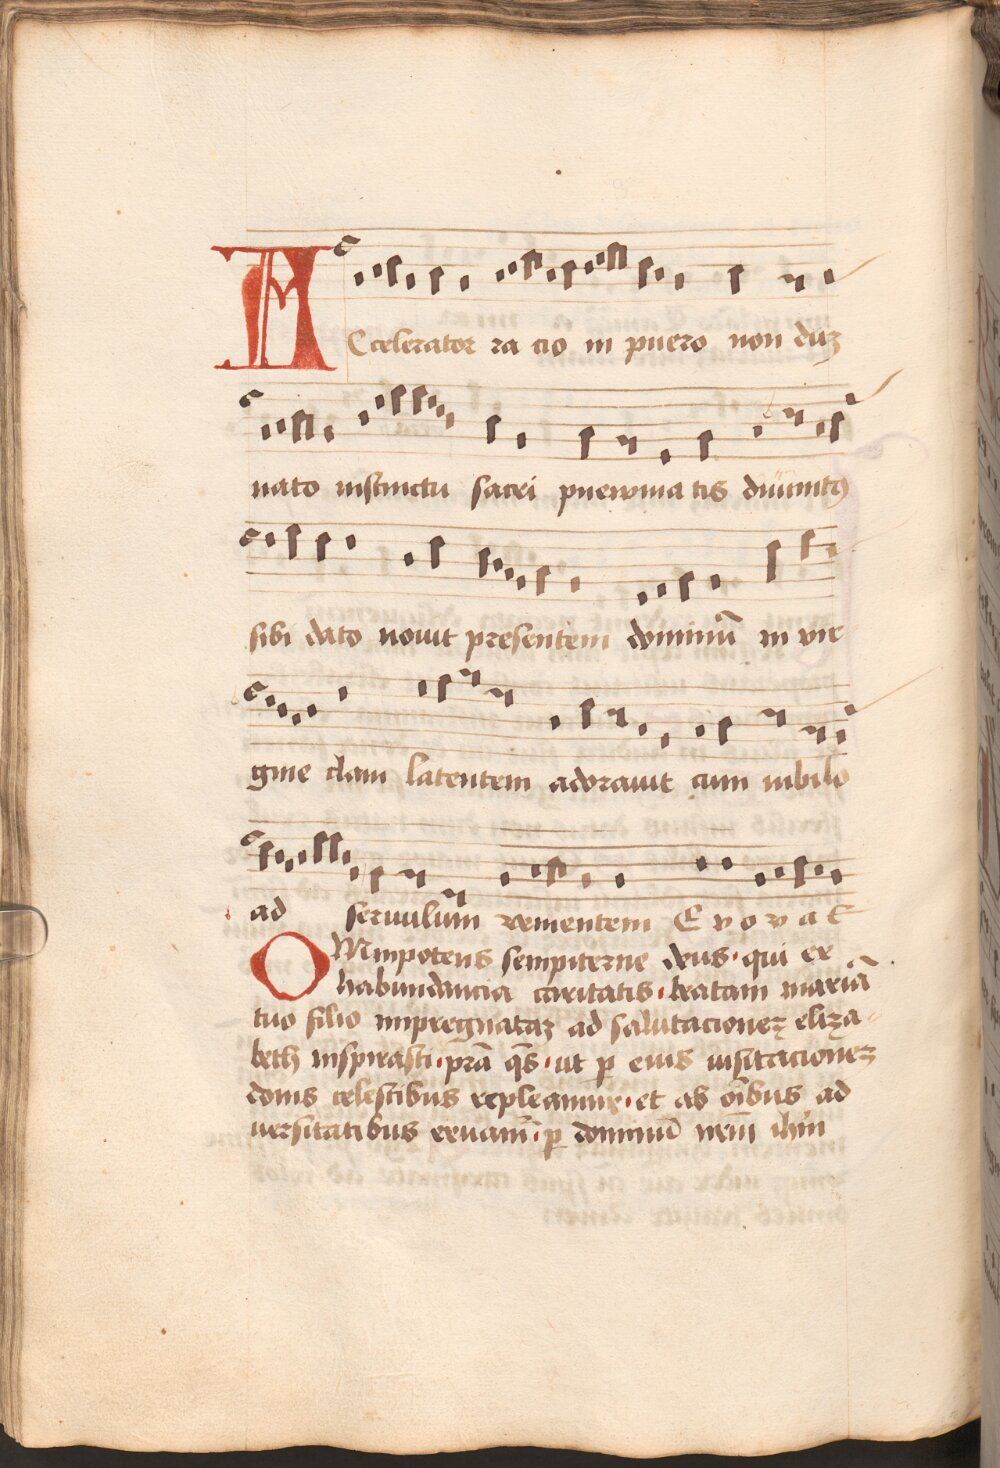 ACcelerator racio in puero non dūꝫ
nato instinctu sacri pnewmatis diuinitꝰ
sibi dato nouit presentem dominū in vir
gine clam latentem adorauit cum iubilo
ad seruulum vementem E v o v a E
OMnipotens sempiterne deus qui ex
habundancia caritatis beatam mariā
tuo filio impregnatāꝫ ad salutacioneꝫ eliza
beth inspirasti prā q̄s ut ꝑ eius visitacioneꝫ
donis celestibus repleamur et ab oībus ad
uersitatibus eruam̄ ꝑ dominū nr̄m ihm̄